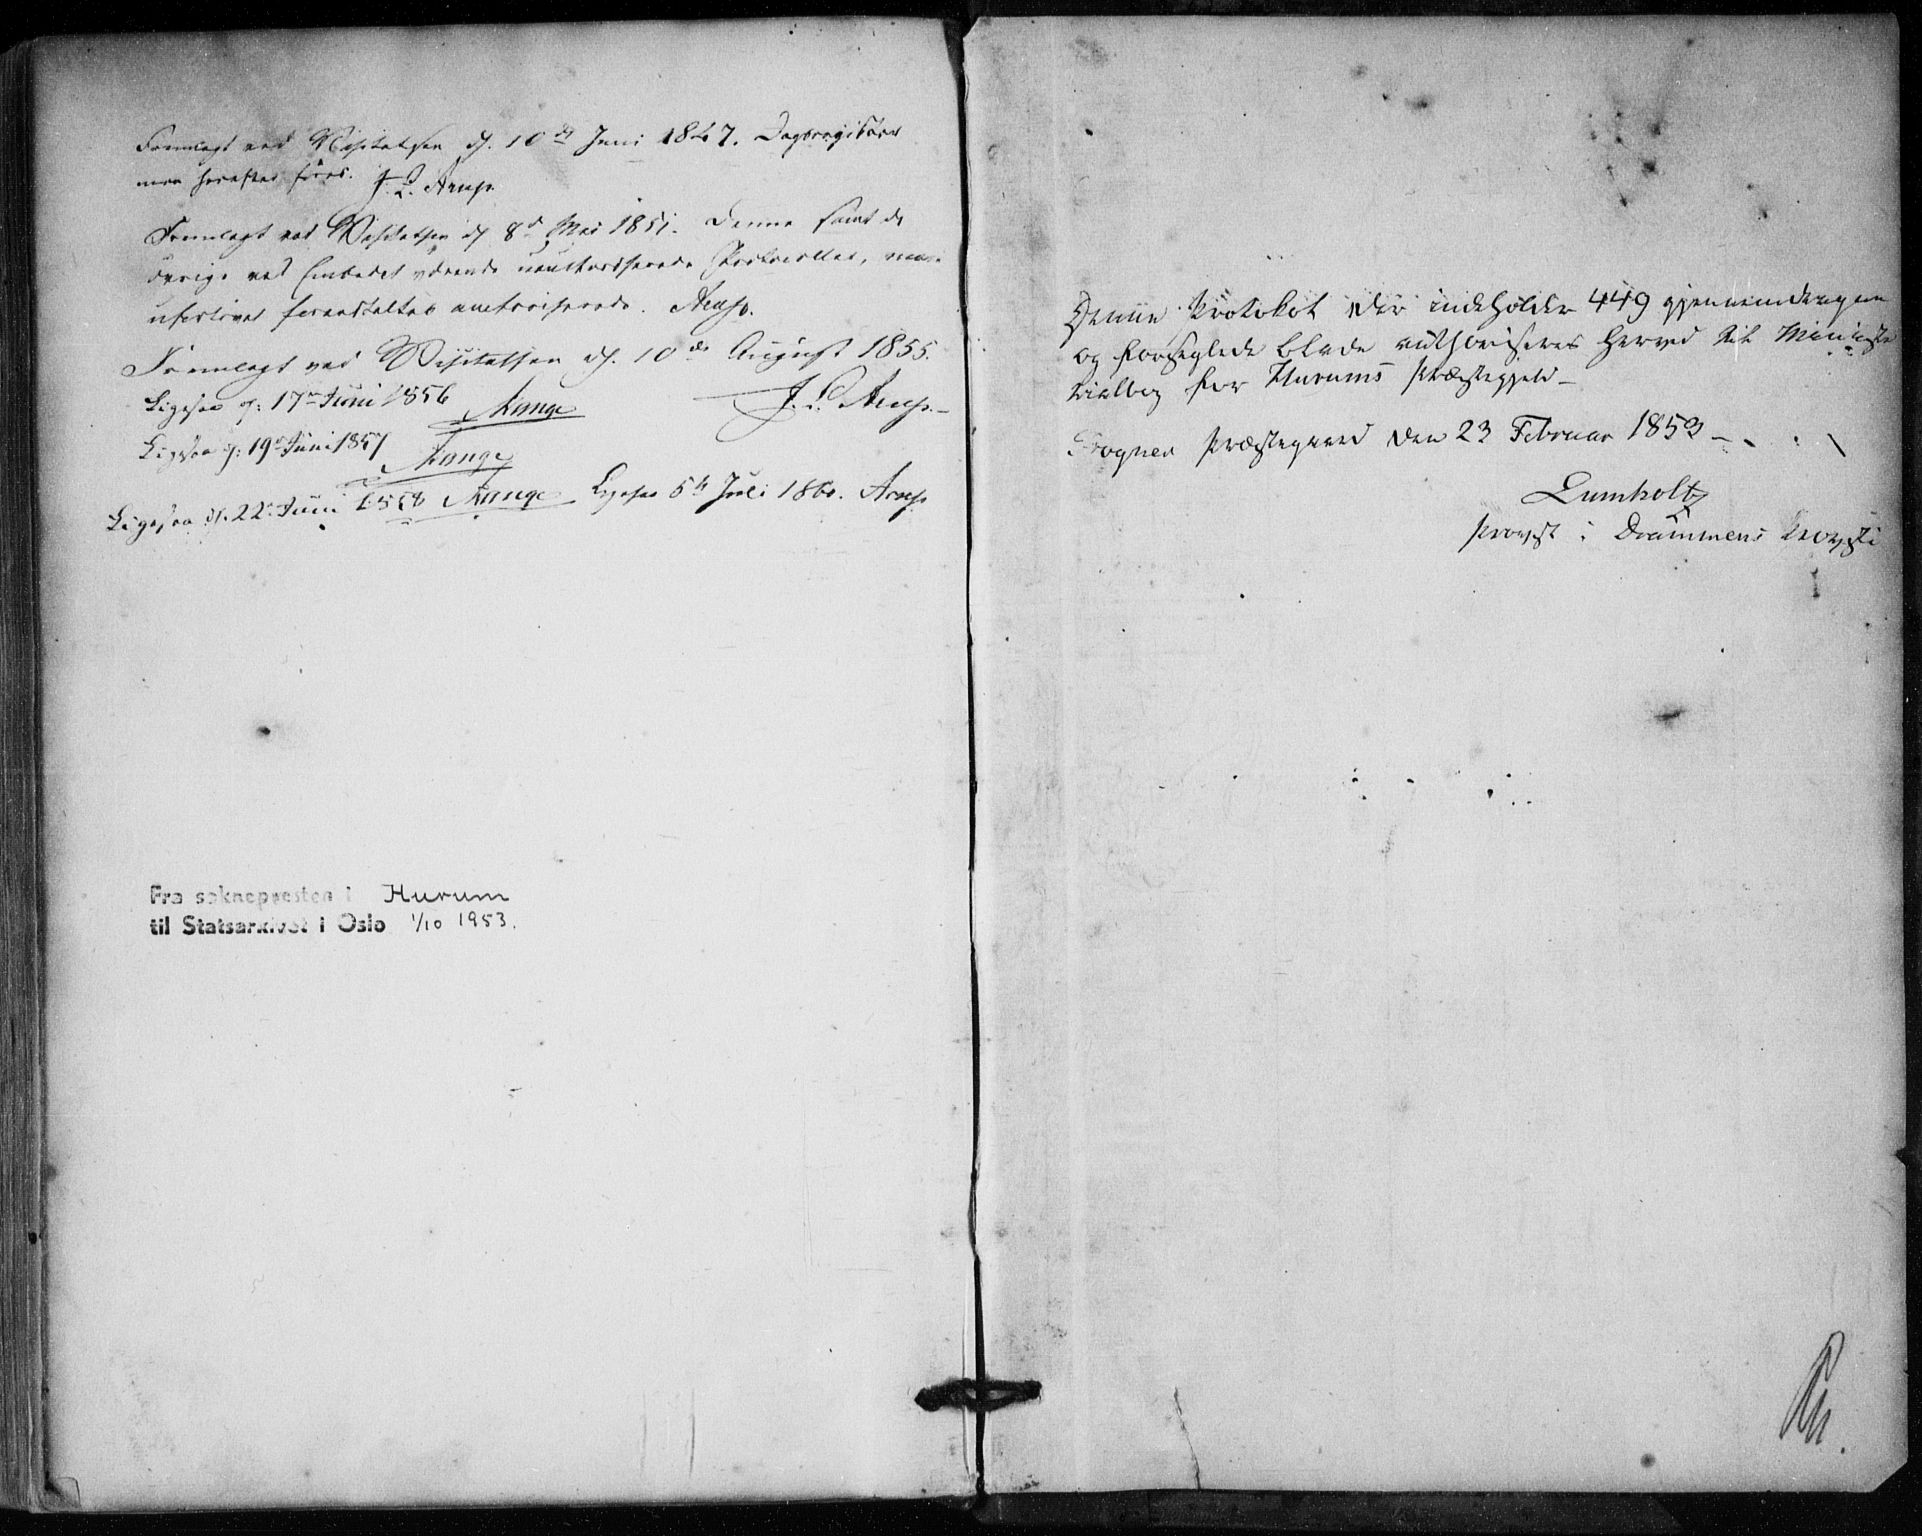 Fremlagt ved Visitatsen d. 10de Juni 1847. Dagsregister
maa herefter føres. J. L. Arup.
Fremlagt ved Visitatsen d. 8d Mai 1851. Denne samt de
øvrige ved Embedet værende uauthoriserede Protocoller, maa
ufortøvet foranstaltes authoriserede. Arup.
Fremlagt ved Visitatsen d. 10de August 1855.
J. L. Arup.
Ligesaa d: 17de Juni 1856
Ligesaa d: 19de Juni 1857
Ligesaa d. 22de Juni 1858 Ligesaa 5te Juli 1860. Arup
Fra soknepresten i Hurum
til Statsarkivet i Oslo 1/10 1953.
Denne Protokol der indeholder 449 gjennemdragne
og forseglede Blade authoriseres herved til Ministe
rialbog for Hurums Præstegjeld –
Sogner Præstegaard den 23 Februar 1853 –
Lumholtz
Provst i Drammens Provsti